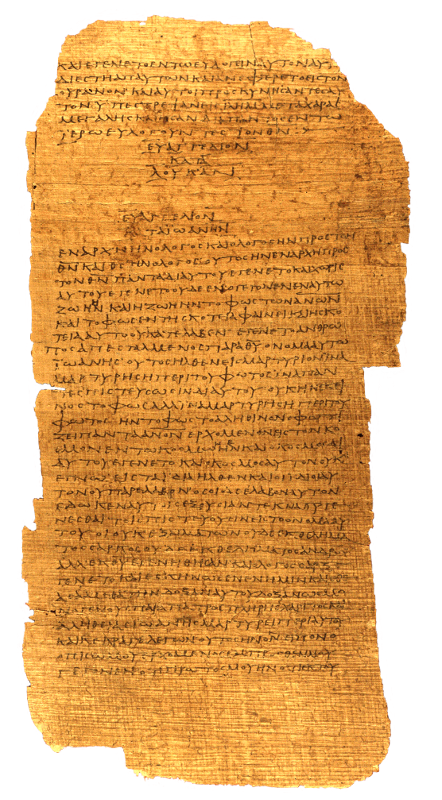 ΚΑΙ ΕΓΕΝΕΤΟ ΕΝ ΤΩ ΕΥΛΟΓΕΙΝ ΑΥΤΟΝ ΑΥΤ
ΔΙΕΣΤΗ ΑΠ ΑΥΤΩΝ ΚΑΙ ΑΝΕΦΕΡΕΤΟ ΕΙΣ ΤΟΝ
ΟΥΡΑΝΟΝ ΚΑΙ ΑΥΤΟΙ ΠΡΟΣΚΥΝΗΣΑΝΤΕΣ Α
ΤΟΝ ΥΠΕΣΤΡΕΨΑΝ ΜΕΤΑ ΧΑΡΑΣ
ΜΕΓΑΛΗΣ ΚΑΙ ΗΣΑΝ ΔΙΑ ΠΑΝΤΟΣ ΕΝ ΤΩ
ΙΕΡΩ ΕΥΛΟΓΟΥΝΤΕΣ ΤΟΝ ΘΝ
ΕΥΑΓΓΕΛΙΟΝ
ΚΑΤΑ
ΛΟΥΚΑΝ
ΕΥΑΓΓΕΛΙΟΝ
ΚΑΤΑ ΙΩΑΝΗΝ
ΕΝ ΑΡΧΗ ΗΝ Ο ΛΟΓΟΣ ΚΑΙ Ο ΛΟΓΟΣ ΗΝ ΠΡΟΣ ΤΟΝ
ΘΝ ΚΑΙ ΘΣ ΗΝ Ο ΛΟΓΟΣ ΟΥΤΟΣ ΗΝ ΕΝ ΑΡΧΗ ΠΡΟΣ
ΤΟΝ ΘΝ ΠΑΝΤΑ ΔΙ ΑΥΤΟΥ ΕΓΕΝΕΤΟ ΚΑΙ ΧΩΡΙΣ
ΑΥΤΟΥ ΕΓΕΝΕΤΟ ΟΥΔΕ ΕΝ Ο ΓΕΓΟΝΕΝ ΕΝ ΑΥΤΩ
ΖΩΗ ΗΝ ΚΑΙ Η ΖΩΗ ΗΝ ΤΟ ΦΩΣ ΤΩΝ ΑΝΩΝ
ΚΑΙ ΤΟ ΦΩΣ ΕΝ ΤΗ ΣΚΟΤΕΙΑ ΦΑΙΝΕΙ ΚΑΙ Η ΣΚΟ
ΤΕΙΑ ΑΥΤΟ ΟΥ ΚΑΤΕΛΑΒΕΝ ΕΓΕΝΕΤΟ ΑΝΘΡΩ
ΠΟΣ ΑΠΕΣΤΑΛΜΕΝΟΣ ΠΑΡΑ ΘΥ ΟΝΟΜΑ ΑΥΤΩ
ΙΩΑΝΗΣ ΟΥΤΟΣ ΗΛΘΕΝ ΕΙΣ ΜΑΡΤΥΡΙΟΝ ΙΝΑ
ΜΑΡΤΥΡΗΣΗ ΠΕΡΙ ΤΟΥ ΦΩΤΟΣ ΙΝΑ ΠΑΝ
ΤΕΣ ΠΙΣΤΕΥΣΩΣΙΝ ΔΙ ΑΥΤΟΥ ΟΥΚ ΗΝ ΕΚΕΙ
ΝΟΣ ΤΟ ΦΩΣ ΑΛΛ ΙΝΑ ΜΑΡΤΥΡΗΣΗ ΠΕΡΙ ΤΟΥ
ΦΩΤΟΣ ΗΝ ΤΟ ΦΩΣ ΤΟ ΑΛΗΘΙΝΟΝ Ο ΦΩΤΙ
ΖΕΙ ΠΑΝΤΑ ΑΝΟΝ ΕΡΧΟΜΕΝΟΝ ΕΙΣ ΤΟΝ ΚΟ
ΣΜΟΝ ΕΝ ΤΩ ΚΟΣΜΩ ΗΝ ΚΑΙ Ο ΚΟΣΜΟΣ ΔΙ
ΑΥΤΟΥ ΕΓΕΝΕΤΟ ΚΑΙ Ο ΚΟΣΜΟΣ ΑΥΤΟΝ ΟΥΚ
ΕΓΝΩ ΕΙΣ ΤΑ ΙΔΙΑ ΗΛΘΕΝ ΚΑΙ ΟΙ ΙΔΙΟΙ ΑΥ
ΤΟΝ ΟΥ ΠΑΡΕΛΑΒΟΝ ΟΣΟΙ ΔΕ ΕΛΑΒΟΝ ΑΥΤΟΝ
ΕΔΩΚΕΝ ΑΥΤΟΙΣ ΕΞΟΥΣΙΑΝ ΤΕΚΝΑ ΘΥ ΓΕ
ΝΕΣΘΑΙ ΤΟΙΣ ΠΙΣΤΕΥΟΥΣΙΝ ΕΙΣ ΤΟ ΟΝΟΜΑ ΑΥ
ΤΟΥ ΟΙ ΟΥΚ ΕΞ ΑΙΜΑΤΩΝ ΟΥΔΕ ΕΚ ΘΕΛΗΜΑ
ΤΟΣ ΣΑΡΚΟΣ ΟΥΔΕ ΕΚ ΘΕΛΗΜΑΤΟΣ ΑΝΔΡΟΣ
ΑΛΛ ΕΚ ΘΥ ΕΓΕΝΗΘΗΣΑΝ ΚΑΙ Ο ΛΟΓΟΣ ΣΑΡΞ
ΕΓΕΝΕΤΟ ΚΑΙ ΕΣΚΗΝΩΣΕΝ ΕΝ ΗΜΙΝ ΚΑΙ ΕΘΕ
ΑΣΑΜΕΘΑ ΤΗΝ ΔΟΞΑΝ ΑΥΤΟΥ ΔΟΞΑΝ ΩΣ ΜΟΝΟ
ΓΕΝΟΥΣ ΠΑΡΑ ΠΑΤΡΟΣ ΠΛΗΡΗΣ ΧΑΡΙΤΟΣ ΚΑΙ
ΑΛΗΘΕΙΑΣ ΙΩΑΝΗΣ ΜΑΡΤΥΡΕΙ ΠΕΡΙ ΑΥΤΟΥ
ΚΑΙ ΚΕΚΡΑΓΕ ΛΕΓΩΝ ΟΥΤΟΣ ΗΝ ΟΝ ΕΙΠΟΝ Ο
ΟΠΙΣΩ ΜΟΥ ΕΡΧΟΜΕΝΟΣ ΕΜΠΡΟΣΘΕΝ ΜΟΥ
ΓΕΓΟΝΕΝ ΟΤΙ ΠΡΩΤΟΣ ΜΟΥ ΗΝ ΟΤΙ ΕΚ ΤΟΥ